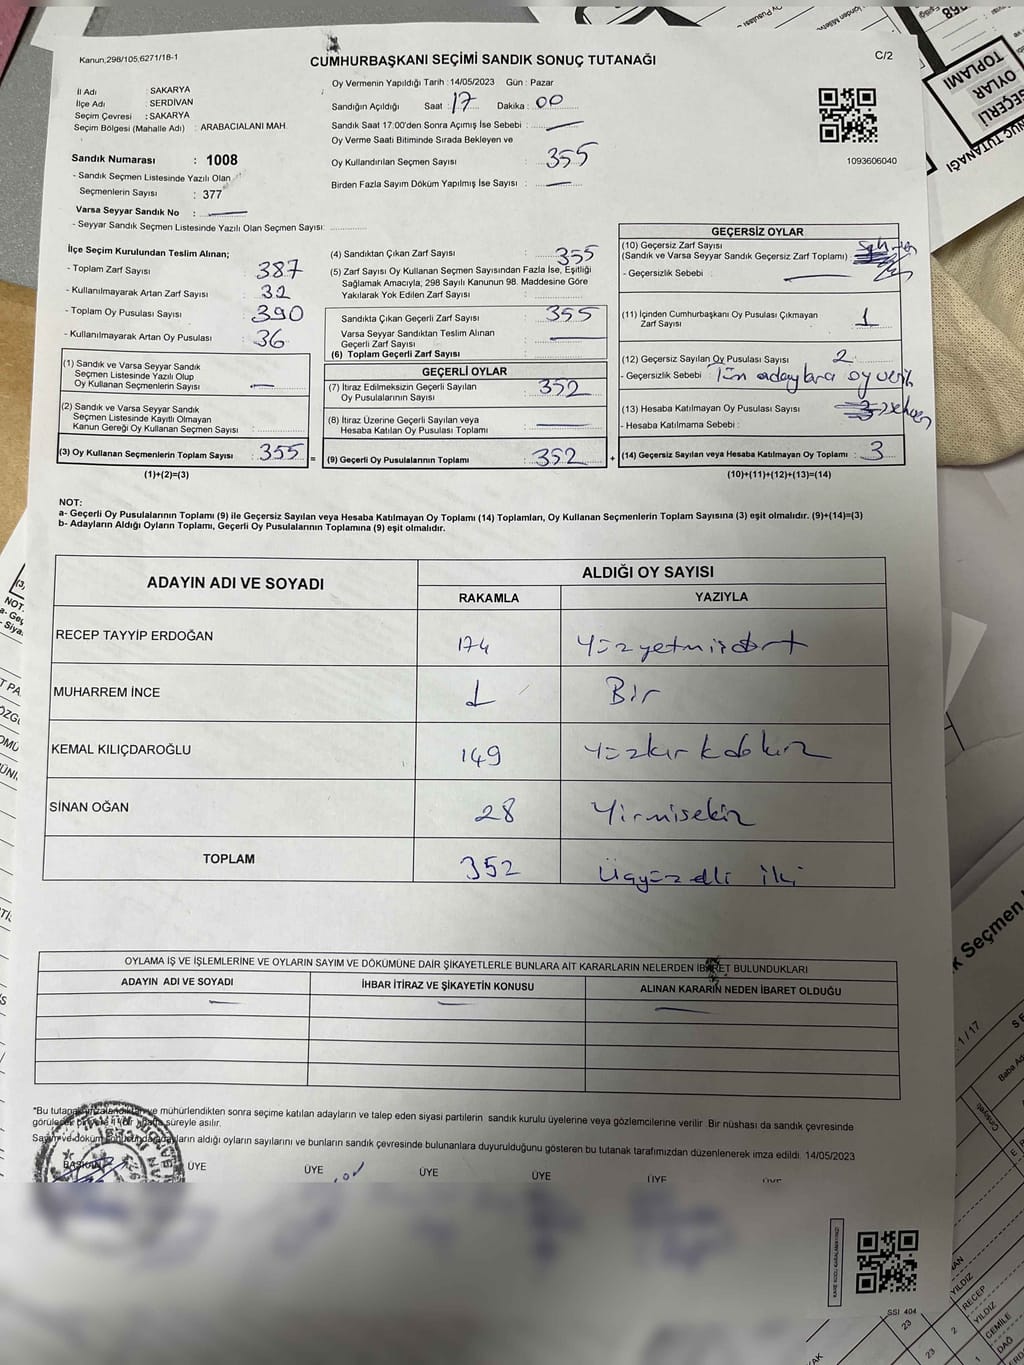 Kanun,298/105,6271/18-1
CUMHURBAŞKANI SEÇİMİ SANDIK SONUÇ TUTANAĞI
C/2
İl Adı : SAKARYA
İlçe Adı : SERDİVAN
Seçim Çevresi : SAKARYA
Seçim Bölgesi (Mahalle Adı) : ARABACIALANI MAH.
Sandık Numarası : 1008
- Sandık Seçmen Listesinde Yazılı Olan
Seçmenlerin Sayısı : 377
Varsa Seyyar Sandık No :
- Seyyar Sandık Seçmen Listesinde Yazılı Olan Seçmen Sayısı:
Oy Vermenin Yapıldığı Tarih : 14/05/2023 Gün : Pazar
Sandığın Açıldığı Saat : 17 Dakika : 00
Sandık Saat 17.00'den Sonra Açımış İse Sebebi :
Oy Verme Saati Bitiminde Sırada Bekleyen ve
Oy Kullandırılan Seçmen Sayısı : 355
Birden Fazla Sayım Döküm Yapılmış İse Sayısı :
1093606040
İlçe Seçim Kurulundan Teslim Alınan;
- Toplam Zarf Sayısı 387
- Kullanılmayarak Artan Zarf Sayısı : 32
- Toplam Oy Pusulası Sayısı : 390
- Kullanılmayarak Artan Oy Pusulası : 36
(1) Sandık ve Varsa Seyyar Sandık
Seçmen Listesinde Yazılı Olup
Oy Kullanan Seçmenlerin Sayısı :
(2) Sandık ve Varsa Seyyar Sandık
Seçmen Listesinde Kayıtlı Olmayan
Kanun Gereği Oy Kullanan Seçmen Sayısı :
(3) Oy Kullanan Seçmenlerin Toplam Sayısı : 355 =
(1)+(2)=(3)
(4) Sandıktan Çıkan Zarf Sayısı : 355
(5) Zarf Sayısı Oy Kullanan Seçmen Sayısından Fazla İse, Eşitliği
Sağlamak Amacıyla, 298 Sayılı Kanunun 98. Maddesine Göre
Yakılarak Yok Edilen Zarf Sayısı :
Sandıkta Çıkan Geçerli Zarf Sayısı : 355
Varsa Seyyar Sandıktan Teslim Alınan
Geçerli Zarf Sayısı :
(6) Toplam Geçerli Zarf Sayısı :
GEÇERLİ OYLAR
(7) İtiraz Edilmeksizin Geçerli Sayılan
Oy Pusulalarının Sayısı : 352
(8) İtiraz Üzerine Geçerli Sayılan veya
Hesaba Katılan Oy Pusulası Toplamı :
(9) Geçerli Oy Pusulalarının Toplamı : 352 +
GEÇERSİZ OYLAR
(10) Geçersiz Zarf Sayısı
(Sandık ve Varsa Seyyar Sandık Geçersiz Zarf Toplamı) :
- Geçersizlik Sebebi :
(11) İçinden Cumhurbaşkanı Oy Pusulası Çıkmayan
Zarf Sayısı : 1
(12) Geçersiz Sayılan Oy Pusulası Sayısı : 2
- Geçersizlik Sebebi : Tüm adaylara oy
(13) Hesaba Katılmayan Oy Pusulası Sayısı :
- Hesaba Katılmama Sebebi :
(14) Geçersiz Sayılan veya Hesaba Katılmayan Oy Toplamı : 3
(10)+(11)+(12)+(13)=(14)
NOT:
a- Geçerli Oy Pusulalarının Toplamı (9) ile Geçersiz Sayılan veya Hesaba Katılmayan Oy Toplamı (14) Toplamları, Oy Kullanan Seçmenlerin Toplam Sayısına (3) eşit olmalıdır. (9)+(14)=(3)
b- Adayların Aldığı Oyların Toplamı, Geçerli Oy Pusulalarının Toplamına (9) eşit olmalıdır.
ADAYIN ADI VE SOYADI
ALDIĞI OY SAYISI
RAKAMLA YAZIYLA
RECEP TAYYİP ERDOĞAN 174 Yüzyetmişdört
MUHARREM İNCE 1 Bir
KEMAL KILIÇDAROĞLU 149 Yüzkırkdokuz
SİNAN OĞAN 28 Yirmisekiz
TOPLAM 352 Üçyüzelli iki
OYLAMA İŞ VE İŞLEMLERİNE VE OYLARIN SAYIM VE DÖKÜMÜNE DAİR ŞİKAYETLERLE BUNLARA AİT KARARLARIN NELERDEN İBARET BULUNDUKLARI
ADAYIN ADI VE SOYADI İHBAR İTİRAZ VE ŞİKAYETİN KONUSU ALINAN KARARIN NEDEN İBARET OLDUĞU
*Bu ve mühürlendikten sonra seçime katılan adayların ve talep eden siyasi partilerin sandık kurulu üyelerine veya gözlemcilerine verilir. Bir nüshası da sandık çevresinde
süreyle asılır.
Sayım ve döküm aldığı oyların sayılarını ve bunların sandık çevresinde bulunanlara duyurulduğunu gösteren bu tutanak tarafımızdan düzenlenerek imza edildi. 14/05/2023
BAŞKAN ÜYE ÜYE ÜYE ÜYE ÜYE ÜYE
SSI 404
GEÇERLİ
OYLAR
TOPLAMI
k Seçmen
1 / 17
Baba Ad
Cinsiyeti
YILDIZ
RECEP
YILDIZ
CEMİLE
DAĞ
23
2
23
1